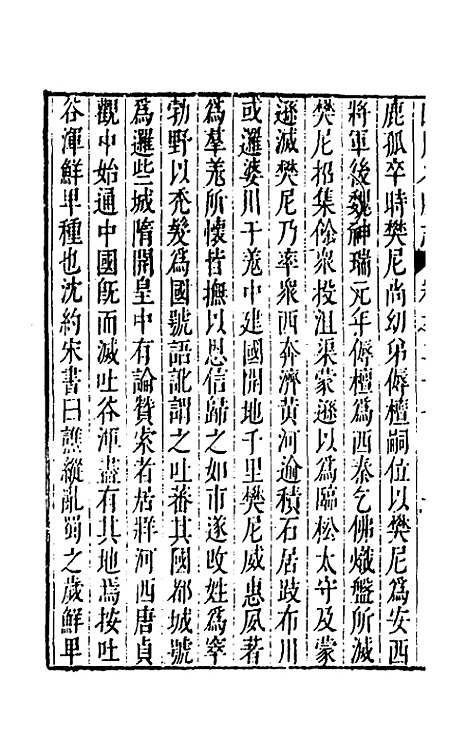 鹿孤卒時樊尼尚幼弟傉檀嗣位以樊尼為安西
將軍後魏神瑞元年傉檀為西秦乞佛熾盤所滅
樊尼招集餘衆投沮渠蒙遜以為臨松太守及蒙
遜滅樊尼乃率衆西奔濟黄河逾積石居跂布川
或邏婆川于羌中建國開地千里樊尼威惠夙著
為羣羌所懷皆撫以恩信歸之如市遂改姓為窣
勃野以秃髮為國號語訛謂之吐蕃其國都城號
為邏些城隋開皇中有論贊索者居牂河西唐貞
觀中始通中國旣而滅吐谷渾盡有其地焉按吐
谷渾鮮卑種也沈約宋書曰譙縱亂蜀之歲鮮卑